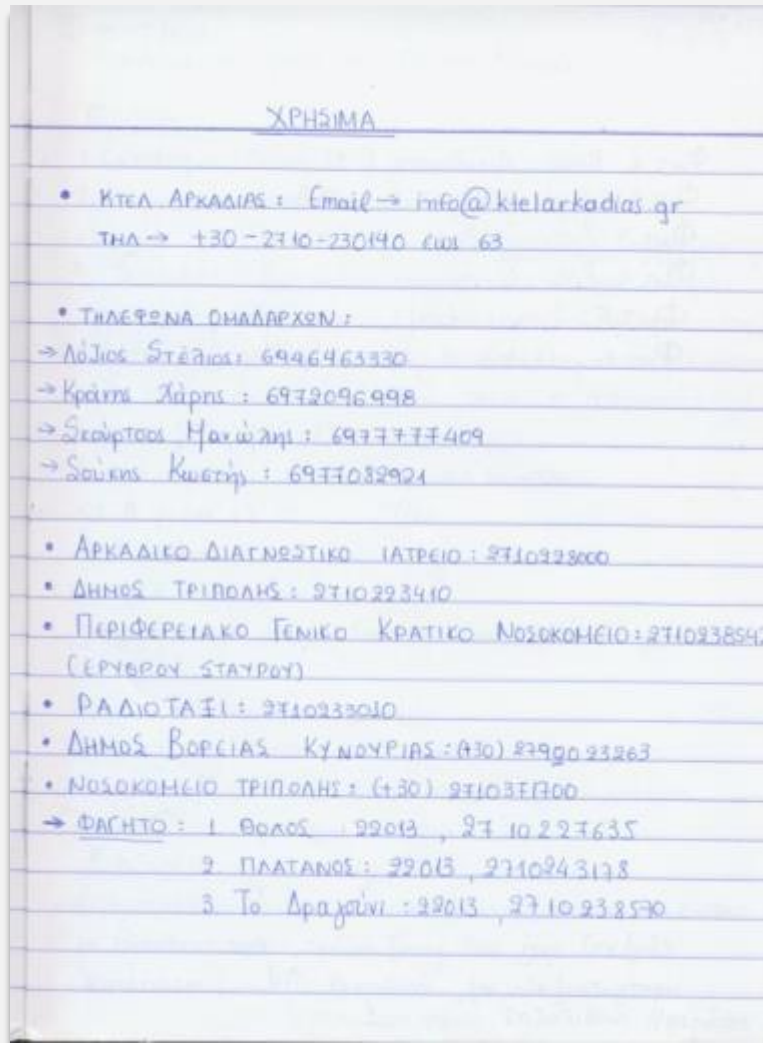 ΧΡΗΣΙΜΑ
• ΚΤΕΛ ΑΡΚΑΔΙΑΣ: Email → info@ktelarkadias.gr
ΤΗΛ → +30-2710-230140 έως 63
• ΤΗΛΕΦΩΝΑ ΟΜΑΔΑΡΧΩΝ:
→ Στέλιος: 6946463330
→ Χάρης: 6972096998
→ Μανώλης: 6977777409
→ Σούκης Κωστής: 6977082921
• ΑΡΚΑΔΙΚΟ ΔΙΑΓΝΩΣΤΙΚΟ ΙΑΤΡΕΙΟ: 2710228000
• ΔΗΜΟΣ ΤΡΙΠΟΛΗΣ: 2710223410
• ΠΕΡΙΦΕΡΕΙΑΚΟ ΓΕΝΙΚΟ ΚΡΑΤΙΚΟ ΝΟΣΟΚΟΜΕΙΟ: 2710238542
(ΕΡΥΘΡΟΥ ΣΤΑΥΡΟΥ)
• ΡΑΔΙΟΤΑΞΙ: 2710233010
• ΔΗΜΟΣ ΒΟΡΕΙΑΣ ΚΥΝΟΥΡΙΑΣ: (+30)
• ΝΟΣΟΚΟΜΕΙΟ ΤΡΙΠΟΛΗΣ: (+30) 2710371700
→ ΦΑΓΗΤΟ: 1 ΘΟΛΟΣ 22013, 2710227635
2 ΠΛΑΤΑΝΟΣ: 22013, 2710243178
3 Το Δραγούνι: 22013, 2710238570